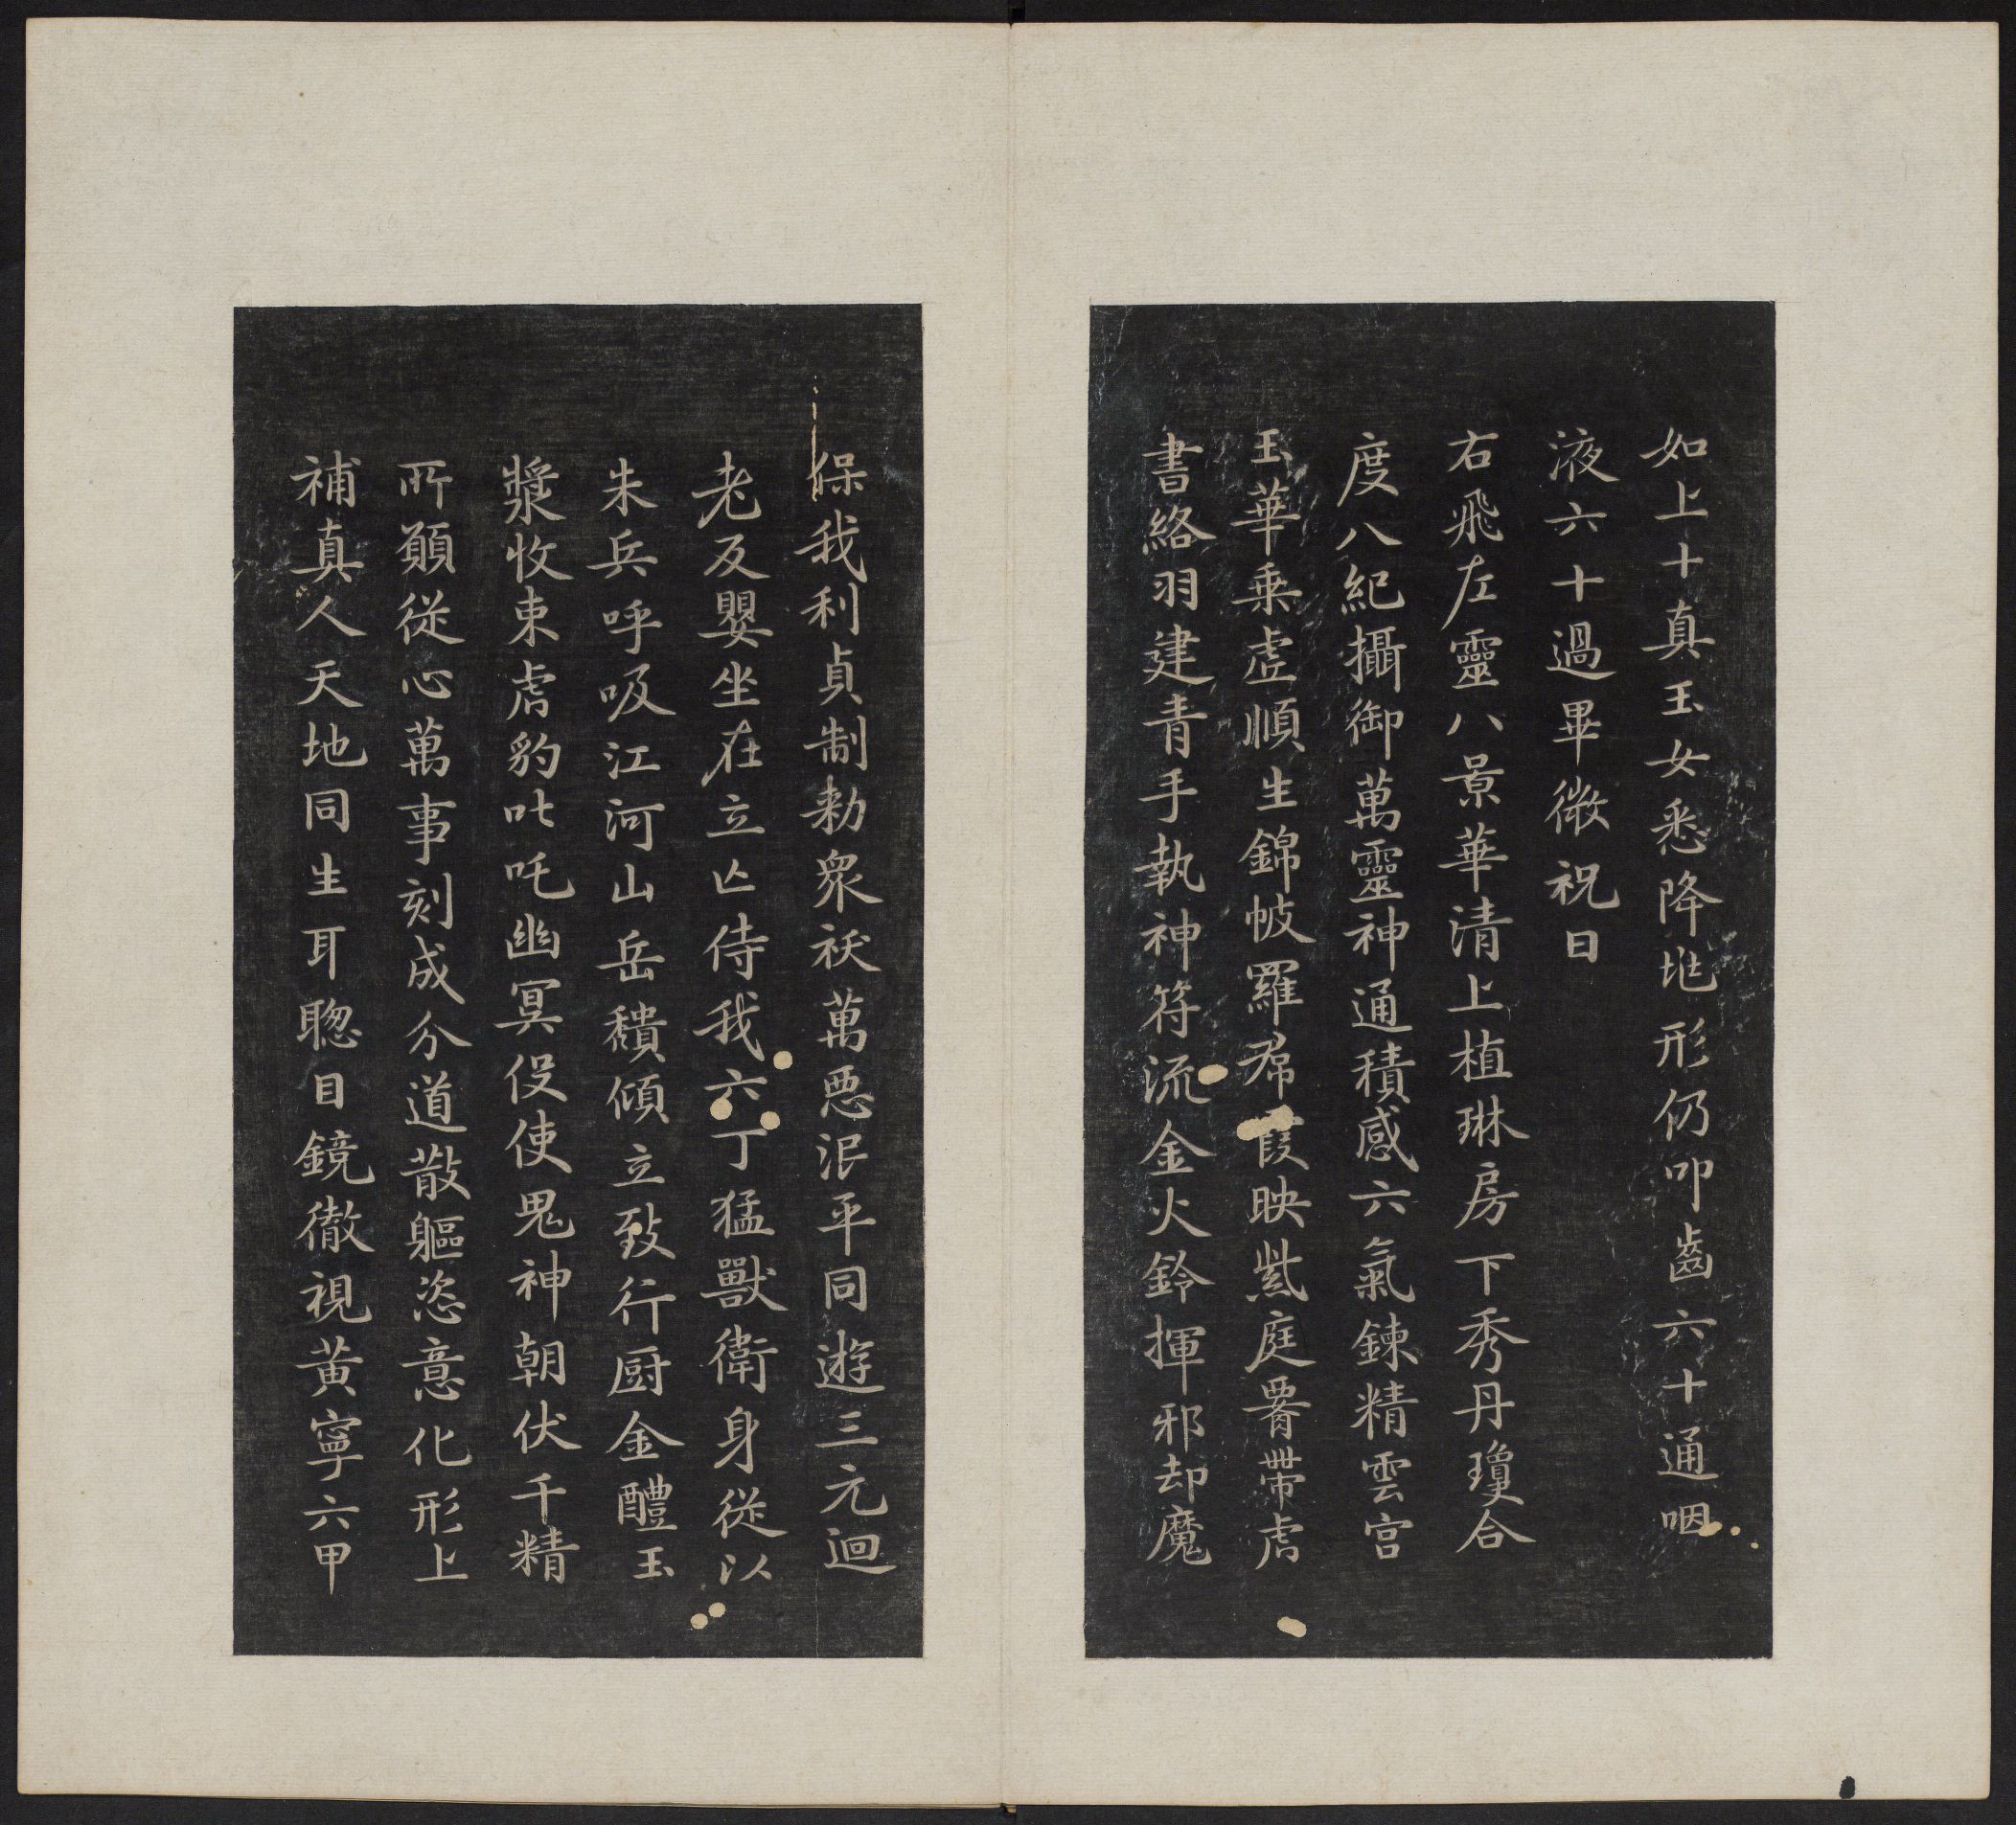 如上十真玉女悉降地形仍叩齒六十通咽
液六十過畢微祝曰
右飛左靈八景華清上植琳房下秀丹瓊合
度八紀攝御萬靈神通積感六氣鍊精雲宮
玉華乘虛順生錦帔羅帬霞映紫庭署帶虎
書絡羽建青手執神符流金火鈴揮邪却魔
保我利貞制勑衆祅萬惡泯平同遊三元迴
老反嬰坐在立亾侍我六丁猛獸衛身從以
朱兵呼吸江河山岳穨傾立致行厨金醴玉
漿收束虎豹叱吒幽冥役使鬼神朝伏千精
所願從心萬事剋成分道散軀恣意化形上
補真人天地同生耳聰目鏡徹視黃寧六甲